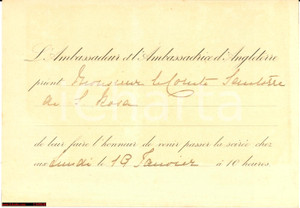 L'Ambassadeur et l'Ambassadrice d'Angleterre
prient Monsieur le Comte
de S. Rosa
de leur faire l'honneur de venir passer la soirée chez
eux Lundi le 13 Janvier à 10 heures